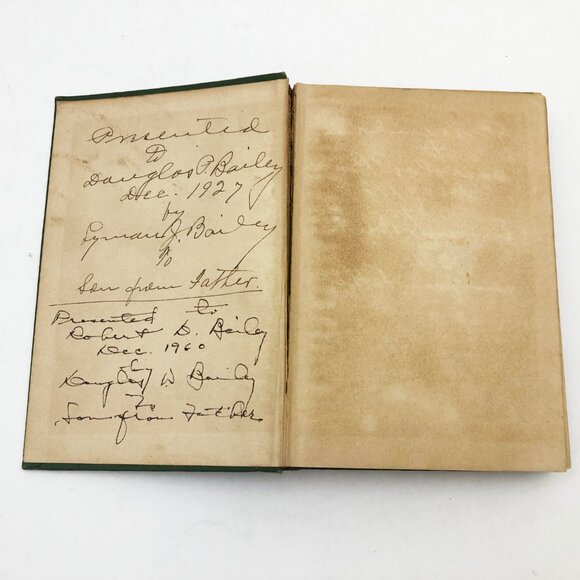 Presented
to
Douglas P. Bailey
Dec. 1927
by
Lyman J. Bailey
To
Son from Father.
Presented to
Robert D. Bailey
Dec. 1960
by
Douglas W Bailey
To
Son from Father